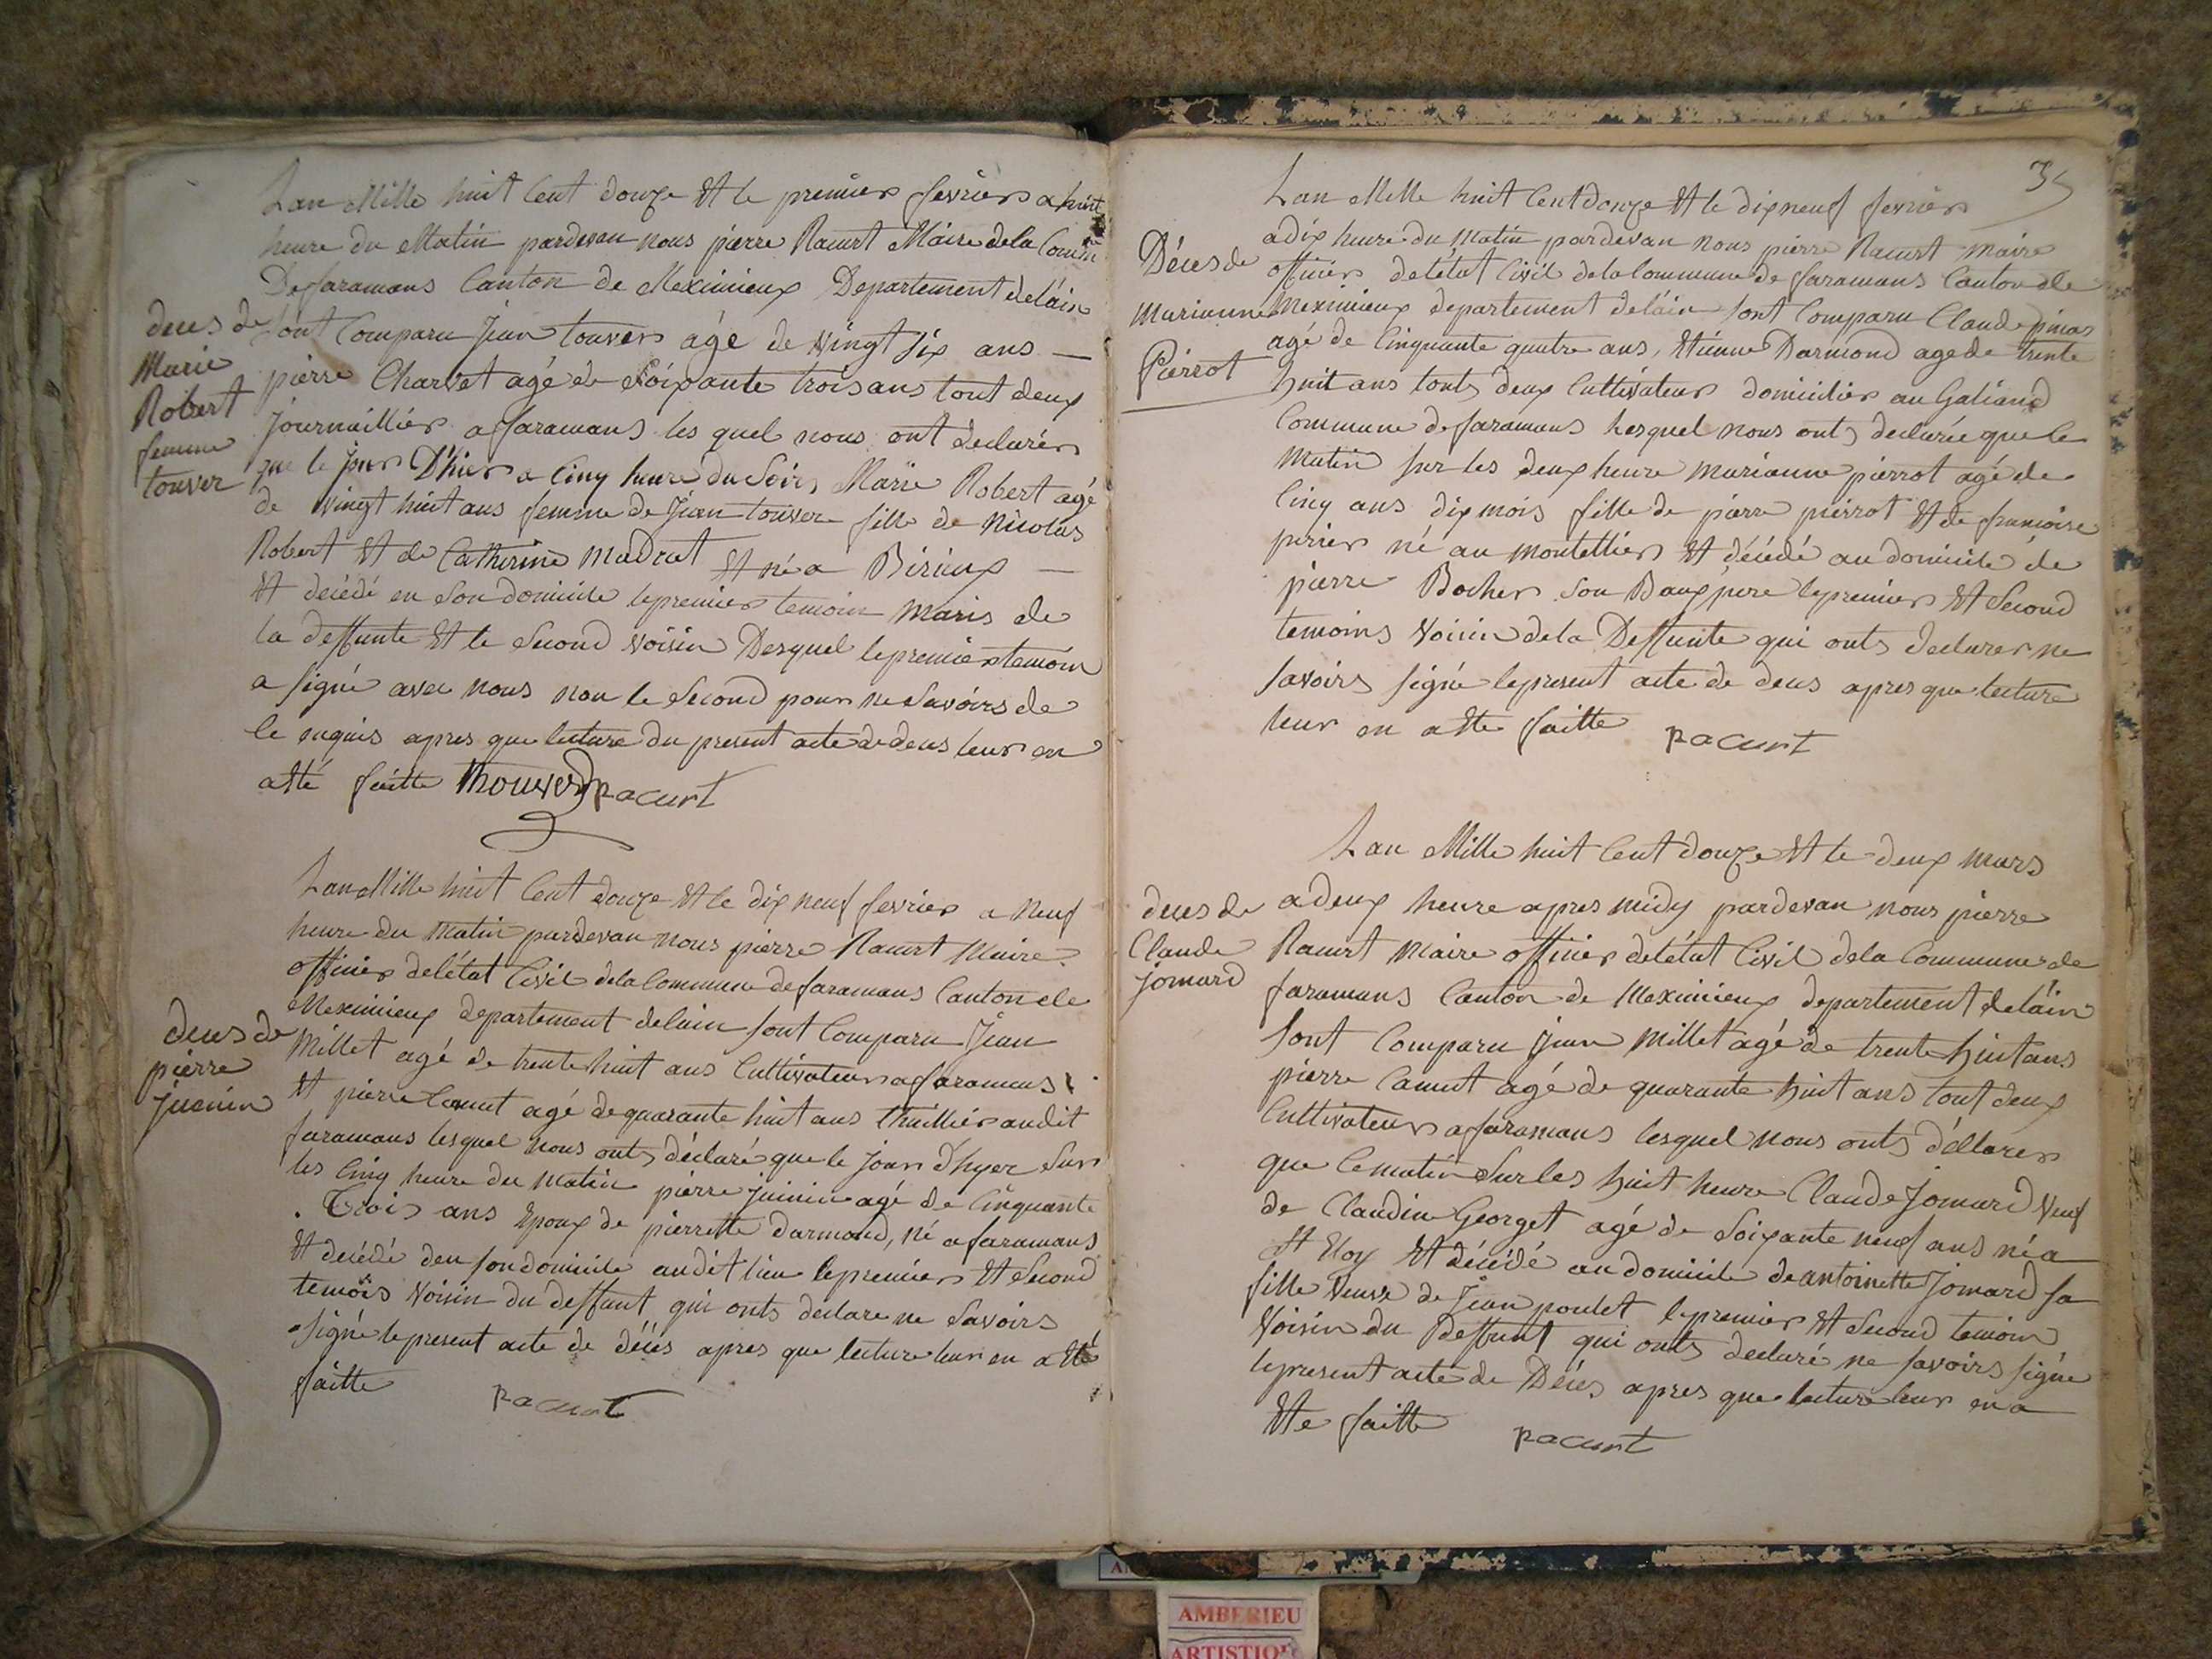 Lan Mille huit Cent douze Et le premier fevrier a huit
heure du Matin pardevan nous pierre Racurt Maire de la Comune
De faramans Canton de Meximieux Departement de láin
sont Comparu Jean touver agé de vingt six ans —
pierre Charvet agé de Soixante trois ans tout deux
journaillier a faramans les quel nous ont declarér
que le jour D'hier a Cinq heure du Soir, Marie Robert agé
de vingt huit ans femme de Jean touver fille de Nicolas
Robert Et de Catherine Madrat Et né a Birieux —
Et decédé en Son domicile le premier temoin maris de
la deffunte Et le Second voisin Desquel le premier temoin
a signé avec nous non le Second pour ne Savoirs de
le requis apres que lecture du present acte de deces leur en
a Eté faitte Thouver Racurt
deces de
Marie
Robert
femme
touver
Lan Mille huit Cent douze Et le dix neuf fevrier a neuf
heure du Matin pardevan nous pierre Racurt Maire
officier de létat Civil de la Commune de faramans Canton de
Meximieux departement de lain sont Comparu Jean
Millet agé de trente huit ans Cultivateur a faramans
Et pierre Camut agé de quarante huit ans thuillier audit
faramans lesquel nous onts déclaré que le jour d'hyer Sur
les Cinq heure du Matin pierre juinin agé de Cinquante
Trois ans Epoux de pierrette darmand, né a faramans
Et decédé den son domicile audit lieu le premier Et Second
temoïs Voisin du deffunt qui onts declare ne Savoirs
signé le present acte de décés apres que lecture leur en a Eté
faitte Racurt
deces de
pierre
juenin
35
Lan Mille huit Cent douze Et le dix neuf fevrier
a dix heure du Matin pardevan nous pierre Racurt Maire
officier de létat Civil de la Commune de faramans Canton de
Meximieux departement de láin sont Comparu Claude pinas
agé de Cinquante quatre ans, Etienne Darmond age de trente
huit ans touts deux Cultivateur domicilier au Galiand
Commune de faramans lesquel nous onts declarée que le
Matin sur les deux heure Marianne pierrot agé de
Cinq ans dix mois fille de pierre pierrot Et de francoise
perier né au montellier Et décédé au domicile de
pierre Bocher Son Baux pere le premier Et Second
temoins Voisin de la Deffunte qui onts declarer ne
savoirs signé le present acte de deces apres que lecture
leur en a Ete faitte Racurt
Déces de
Marianne
Pierrot
Lan Mille huit Cent douze Et le deux mars
a deux heure apres midy pardevan nous pierre
Racurt Maire officier de létat Civil de la Commune de
faramans Canton de Meximieux departement de láin
sont Comparu Jean Millet agé de trente huit ans
pierre Camut agé de quarante huit ans tout deux
Cultivateur a faramans lesquel nous onts déclarer
que le matin Sur les huit heure Claude Jomard Veuf
de Claudine Georget agé de Soixante neuf ans né a
St Eloy Et décédé au domicile de antoinette Jomard sa
fille Veuve de Jean poulet le premier Et Second temoin
Voisin du Deffunt qui onts declaré ne savoirs signé
le present acte de Déces apres que lecture leur en a
Ete faitte Racurt
deces de
Claude
jomard
AMBERIEU
ARTISTIQUE